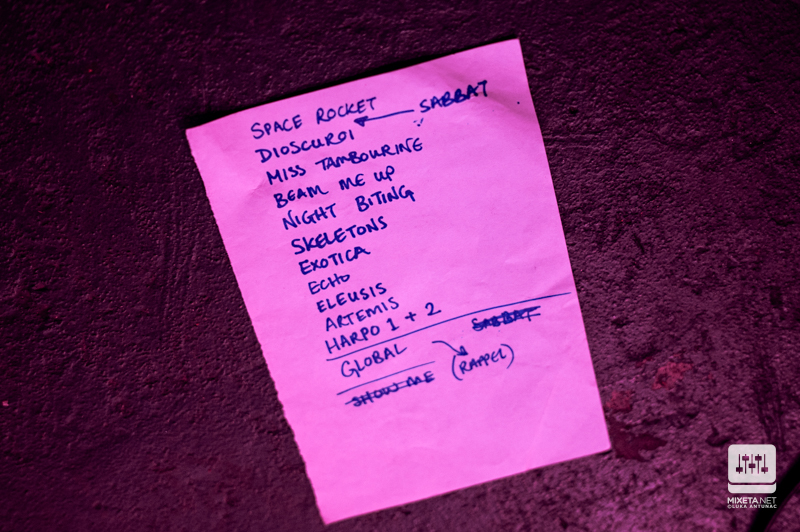 SPACE ROCKET
SABBAT
DIOSCUROI
MISS TAMBOURINE
BEAM ME UP
NIGHT BITING
SKELETONS
EXOTICA
ECHO
ELEUSIS
ARTEMIS
HARPO 1 + 2
SABBAT
GLOBAL
(RAPPEL)
SHOW ME
MIXETA.NET
©LUKA ANTUNAC